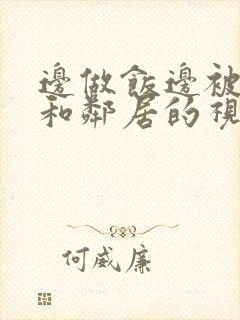 邊做飯邊被
和鄰居的視
何威廉